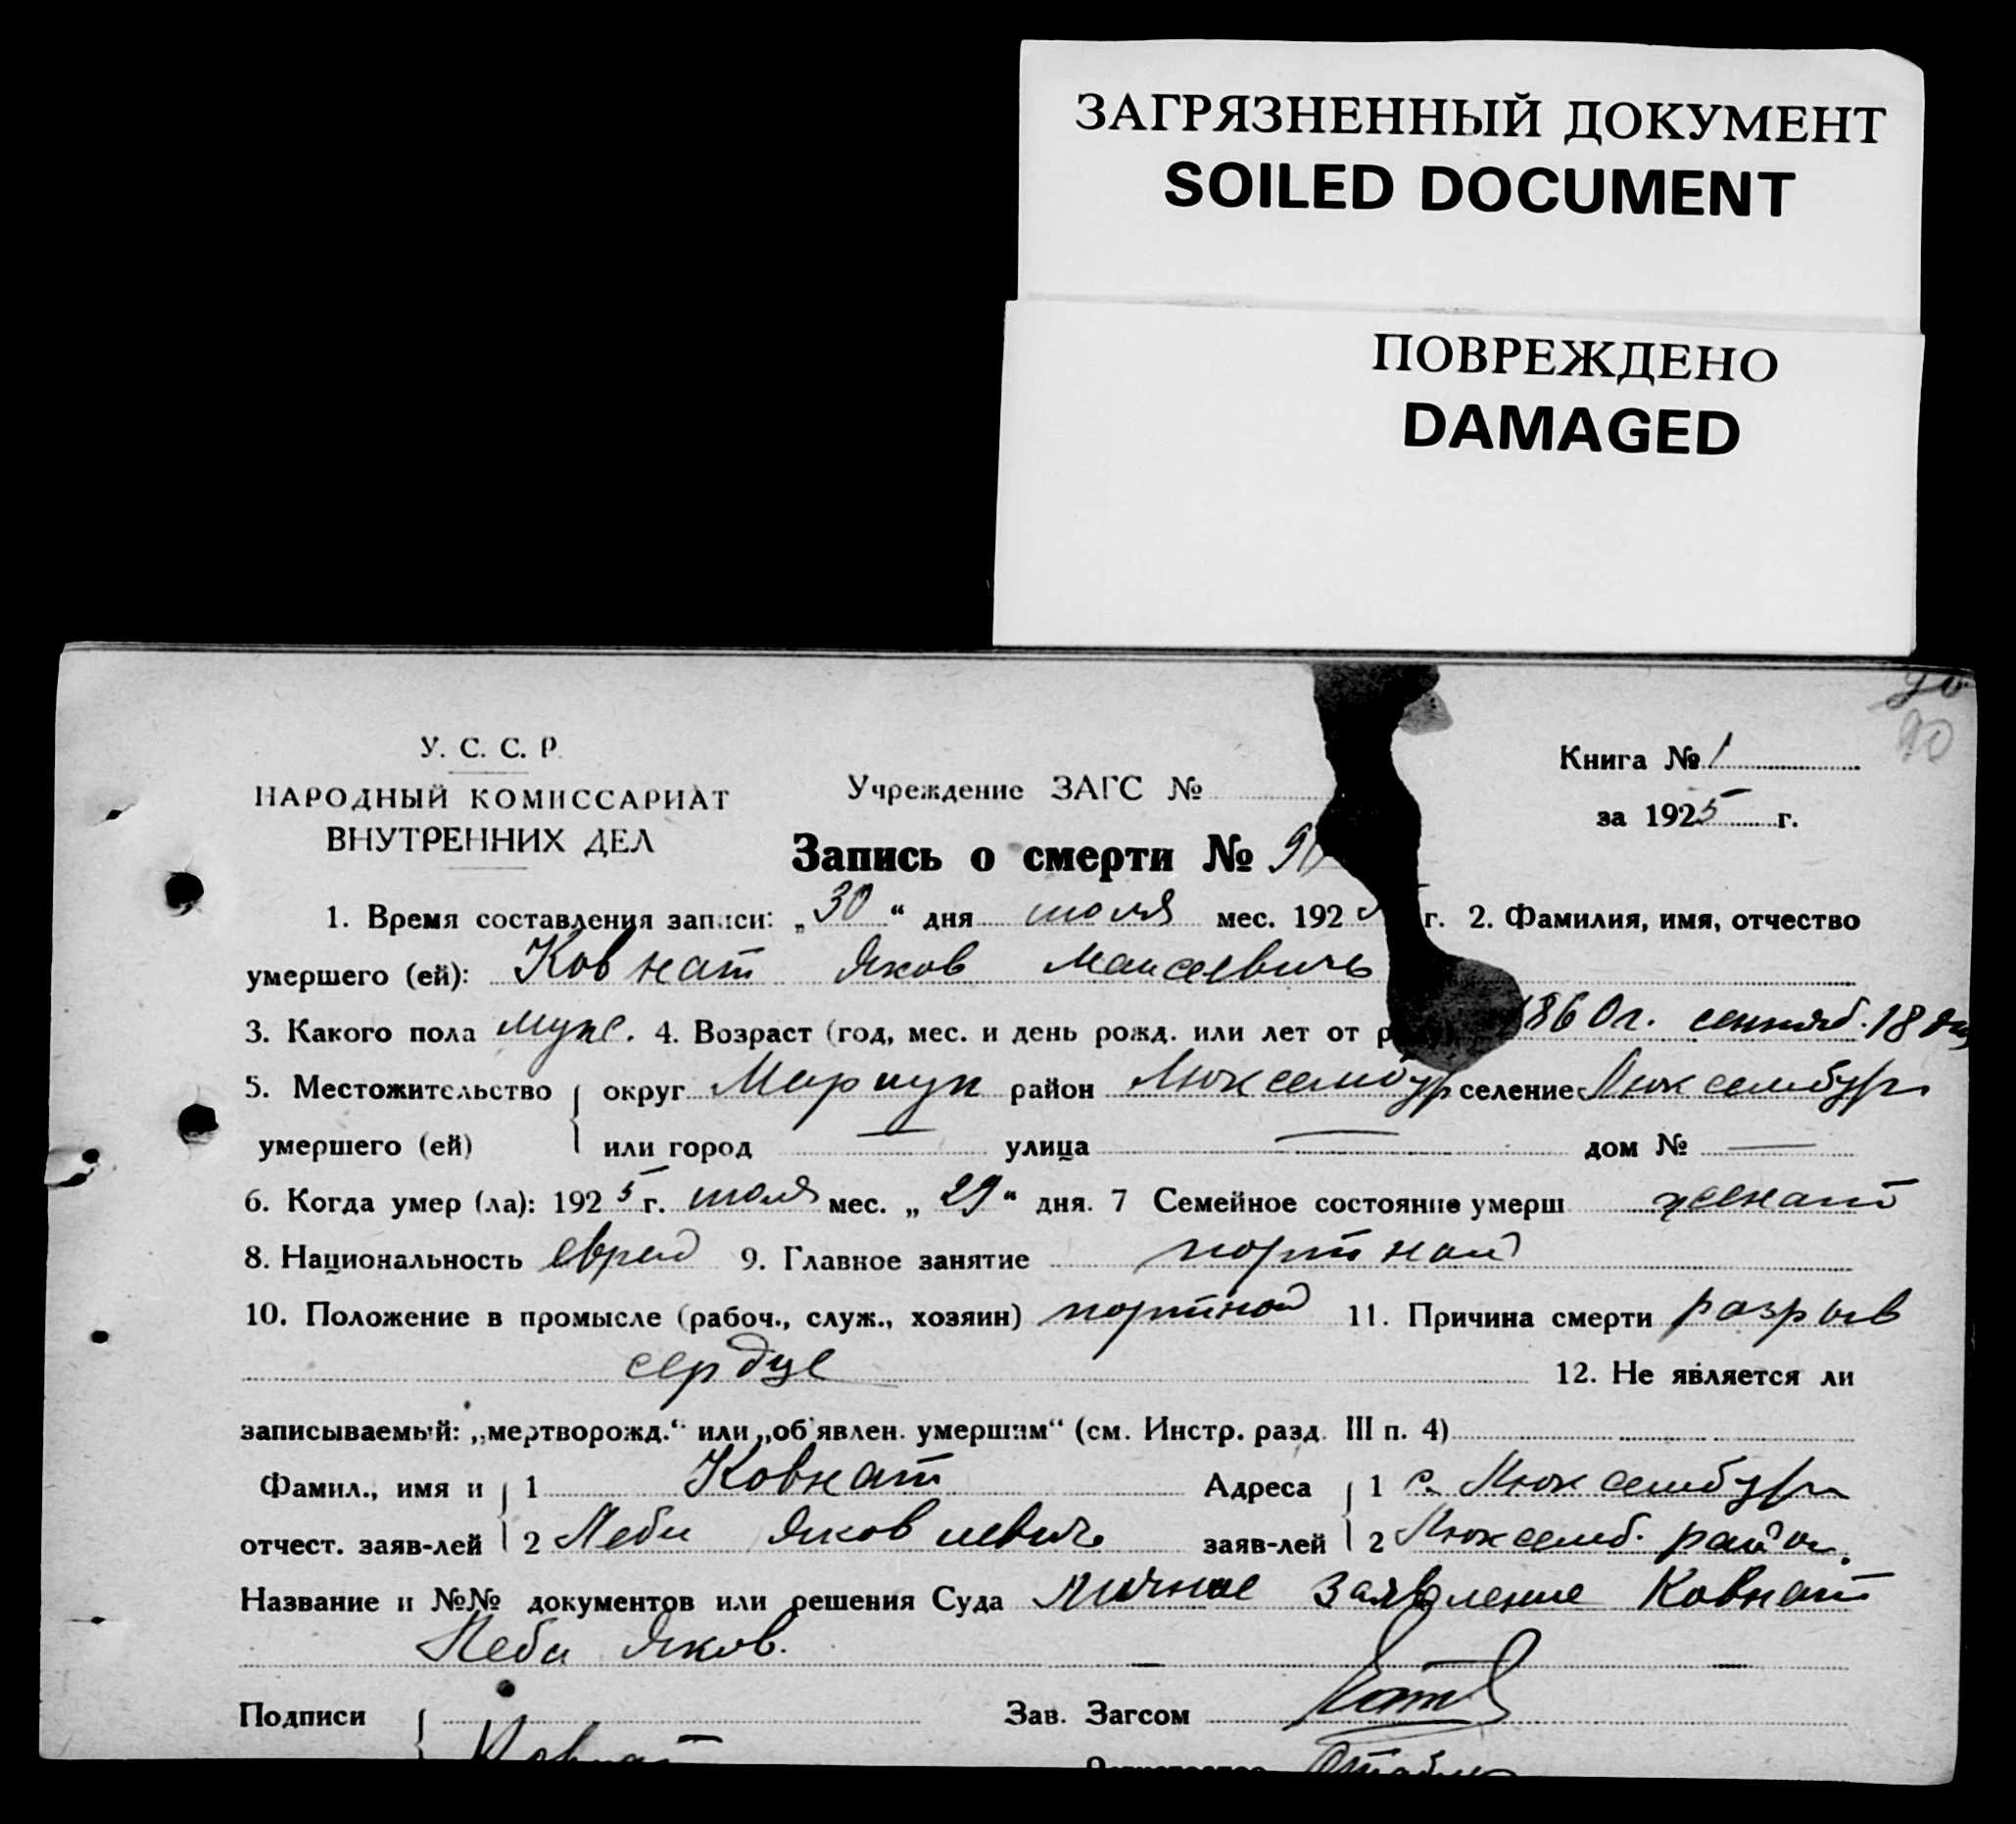 ЗАГРЯЗНЕННЫЙ ДОКУМЕНТ
SOILED DOCUMENT
ПОВРЕЖДЕНО
DAMAGED
90
У. С. С. Р.
НАРОДНЫЙ КОМИССАРИАТ
ВНУТРЕННИХ ДЕЛ
Учреждение ЗАГС №
Книга № 1
за 1925 г.
Запись о смерти №
1. Время составления записи: „30“ дня июля мес. 192 г. 2. Фамилия, имя, отчество
умершего (ей): Ковнат Яков Маисеевичь
3. Какого пола мужс. 4. Возраст (год, мес. и день рожд. или лет от 1860 г. сентяб. 18 дн
5. Местожительство { округ Мариуп район Люксембург селение Люксембург
умершего (ей) или город — улица — дом № —
6. Когда умер (ла): 1925 г. июля мес. „29“ дня. 7 Семейное состояние умерш женат
8. Национальность еврей 9. Главное занятие портной
10. Положение в промысле (рабоч., служ., хозяин) портной 11. Причина смерти разрыв
сердце 12. Не является ли
записываемый: „мертворожд.“ или „об'явлен. умершим“ (см. Инстр. разд. III п. 4)
Фамил., имя и { 1 Ковнат Адреса { 1 с. Люксембург
отчест. заяв-лей 2 Леби Яковлевичь заяв-лей 2 Люксемб. район.
Название и №№ документов или решения Суда личное заявление Ковнат
Леби Яков.
Подписи { Зав. Загсом
Ковнат